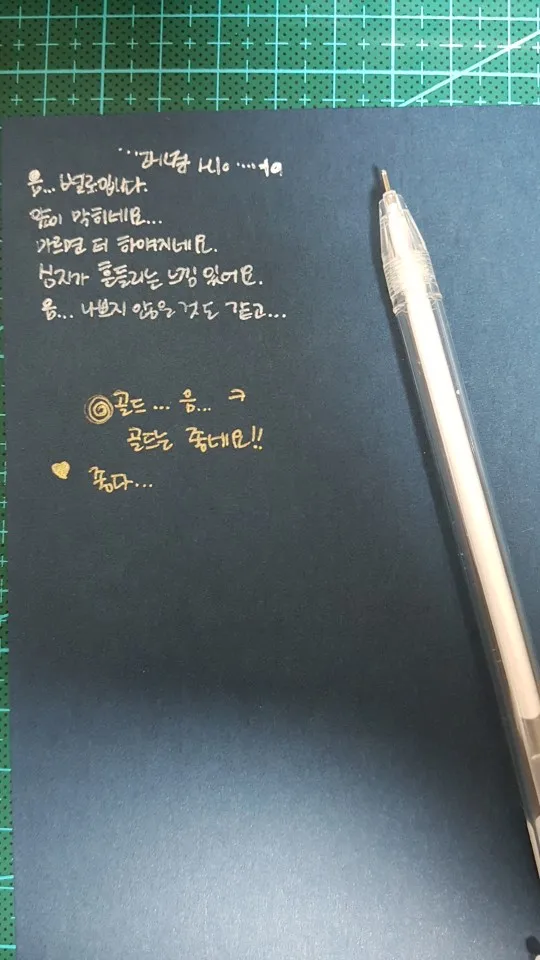 음... 별로입니다.
많이 막히네요...
마르면 더 하얘지네요.
심지가 흔들리는 느낌 있어요.
음... 나쁘지 않은 것도 같고...
골드... 음... ㅋ
골드는 좋네요!!
좋다...